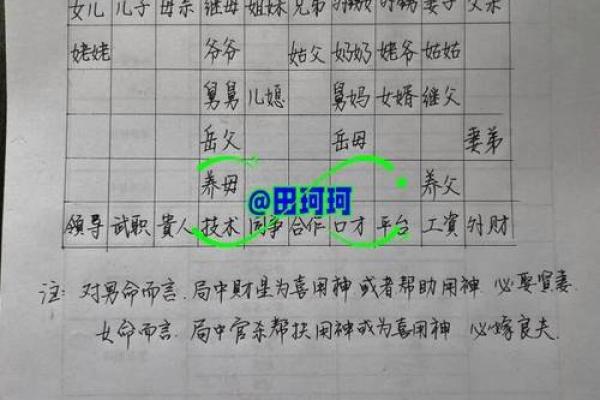 女儿 儿子 母亲 继母 姐妹 兄弟 妻子 父亲
姥姥 爷爷 姑父 奶奶 姥爷 姑姑
舅舅 儿媳 舅妈 女婿 继父
岳父 岳母 妻弟
养母 养父
@田珂珂
领导 武职 貴人 技术 同事 合作 口才 平台 工資 外财
注: 对男命而言.局中财星为喜用神 或者帮助用神 必娶賢妻.
女命而言.局中官杀帮扶用神或为喜用神 必嫁良夫.